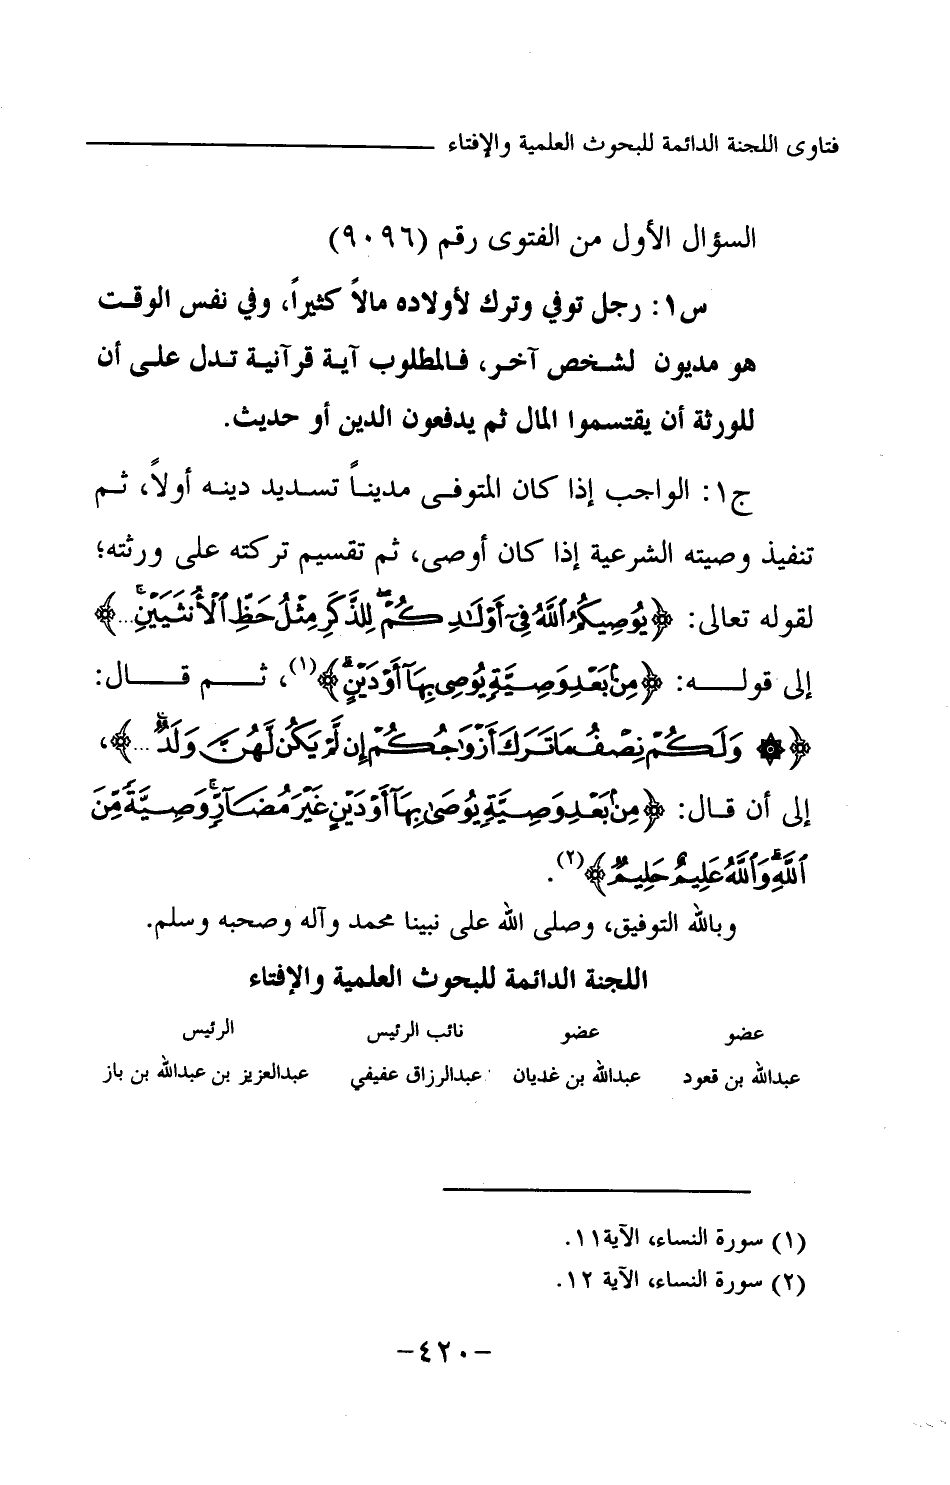 فتاوى اللجنة الدائمة للبحوث العلمية والإفتاء
السؤال الأول من الفتوى رقم (٩٠٩٦)
س١: رجل توفي وترك لأولاده مالاً كثيراً، وفي نفس الوقت
هو مديون لشخص آخر، فالمطلوب آية قرآنية تدل على أن
للورثة أن يقتسموا المال ثم يدفعون الدين أو حديث.
ج١: الواجب إذا كان المتوفى مديناً تسديد دينه أولاً، ثم
تنفيذ وصيته الشرعية إذا كان أوصى، ثم تقسيم تركته على ورثته؛
لقوله تعالى: ﴿يُوصِيكُمُ ٱللَّهُ فِىٓ أَوْلَـٰدِكُمْ ۖ لِلذَّكَرِ مِثْلُ حَظِّ ٱلْأُنثَيَيْنِ ۚ...﴾
إلى قوله: ﴿مِنۢ بَعْدِ وَصِيَّةٍ يُوصِى بِهَآ أَوْ دَيْنٍ ۗ﴾(١)، ثم قال:
﴿۞ وَلَكُمْ نِصْفُ مَا تَرَكَ أَزْوَٰجُكُمْ إِن لَّمْ يَكُن لَّهُنَّ وَلَدٌ ۚ...﴾،
إلى أن قال: ﴿مِنۢ بَعْدِ وَصِيَّةٍ يُوصَىٰ بِهَآ أَوْ دَيْنٍ غَيْرَ مُضَآرٍّ ۚ وَصِيَّةً مِّنَ
ٱللَّهِ ۗ وَٱللَّهُ عَلِيمٌ حَلِيمٌ﴾(٢).
وبالله التوفيق، وصلى الله على نبينا محمد وآله وصحبه وسلم.
اللجنة الدائمة للبحوث العلمية والإفتاء
عضو عضو نائب الرئيس الرئيس
عبدالله بن قعود عبدالله بن غديان عبدالرزاق عفيفي عبدالعزيز بن عبدالله بن باز
(١) سورة النساء، الآية١١.
(٢) سورة النساء، الآية ١٢.
-٤٢٠-